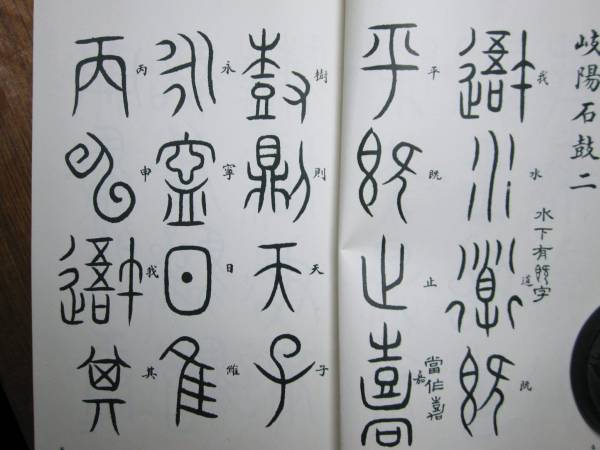 岐陽石鼓二
我水道既
水下有既字
平既止嘉
當作嘉
樹則天子
永寧日維
丙申我其